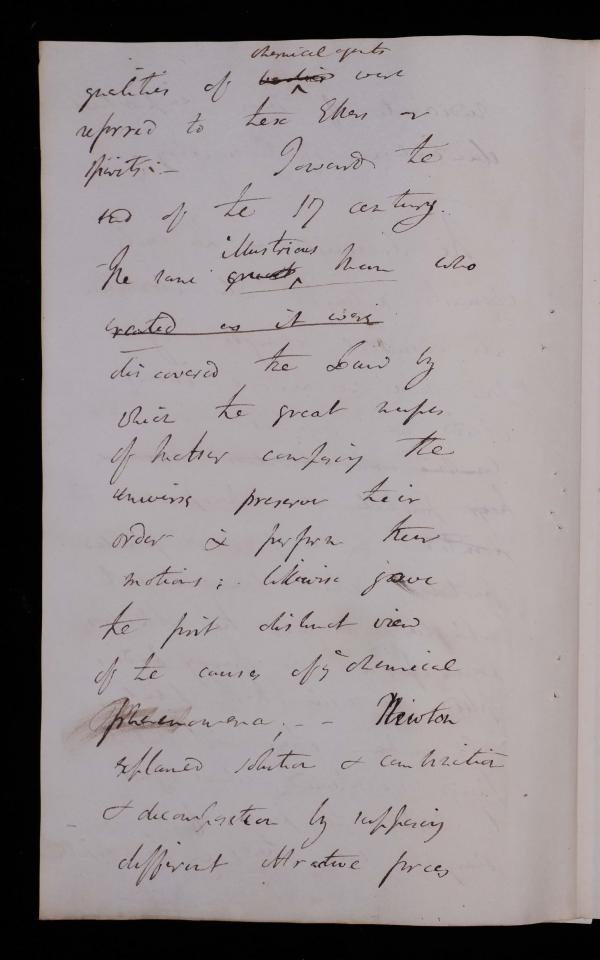 chemical agents
qualities of bodies were
referred to these Ethers or
Spirits:– Toward the
end of the 17 century.
illustrious
The same great man who
created as it were
discovered the Law by
which the great masses
of matter composing the
universe preserve their
order & perform their
motions; likewise gave
the first distinct view
of the causes of ye chemical
phaenomena; – – Newton
explained solution & combination
& decomposition by supposing
different attractive forces